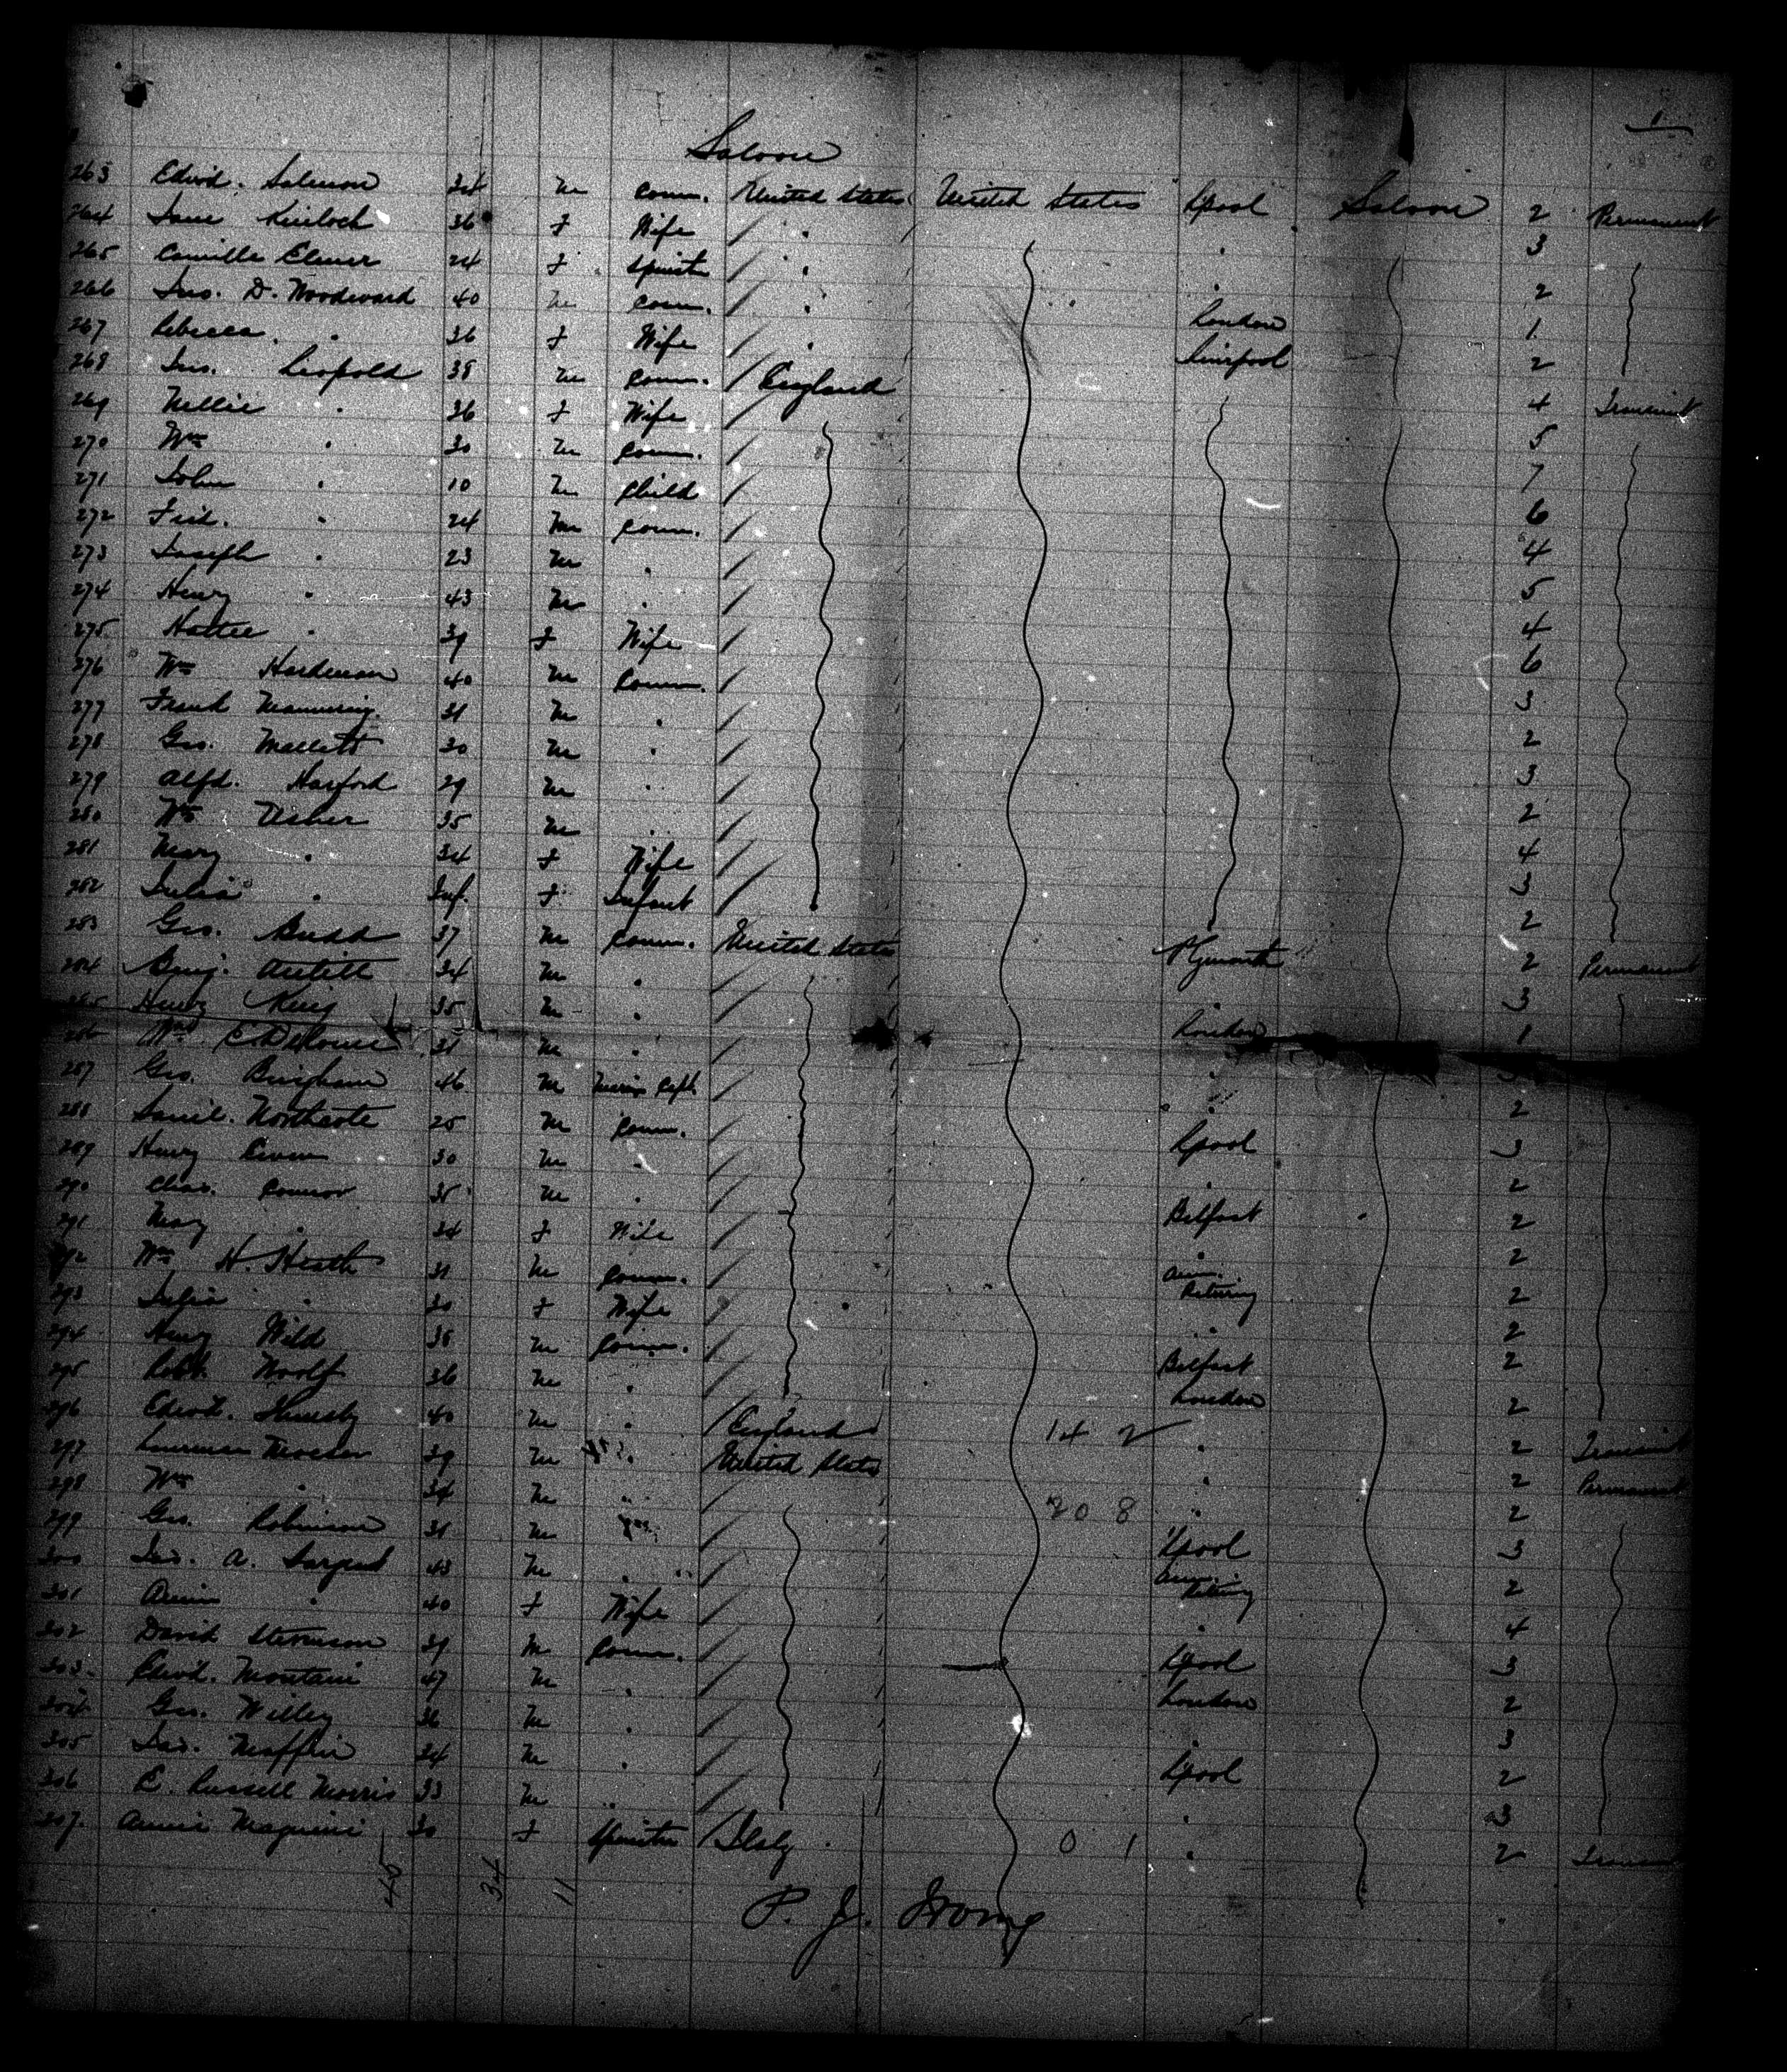 1
Saloon
263 Edwd. Salmon 34 m Comm. United States United States Lpool Saloon 2 Permanent
264 Jane Kinloch 36 f Wife " " 3
265 Camille Elmer 24 f Spinster " " 2
266 Jno. D. Woodward 40 m Comm. " London 1
267 Rebecca " 36 f Wife " Liverpool 2
268 Jas. Leopold 38 m Comm. England 4 Transient
269 Nellie " 36 f Wife 5
270 Wm " 30 m Comm. 7
271 John " 10 m Child 6
272 Fred. " 24 m Comm. 4
273 Joseph " 23 m " 5
274 Henry " 43 m " 4
275 Hattie " 39 f Wife 6
276 Wm Hardeman 40 m Comm. 3
277 Frank Mannering 31 m " 2
278 Geo. Mallett 30 m " 3
279 Alfd. Harford 29 m " 2
280 Wm Usher 35 m " 4
281 Mary " 34 f Wife 3
282 Julia " Inf. f Infant 2
283 Geo. Budd 37 m Comm. United States Plymouth 2 Permanent
284 Benj. Antill 34 m " " 3
285 Henry King 35 m " London 1
286 31 m " "
287 Geo. Bingham 46 m " 2
288 Saml. Northcote 25 m Comm. Lpool 3
289 Henry 30 m " " 2
290 Chas. Connor 35 m " Belfast 2
291 May " 34 f Wife " 2
292 Wm H. Heath 31 m Comm. Returning 2
293 " 30 f Wife " 2
294 Henry Wild 38 m Comm. Belfast 2
295 Robt. Woolf 36 m " London 2
296 Edwd. 40 m " England 14 2 " 2 Transient
297 39 m " United States " 2 Permanent
298 Wm " 34 m " 20 8 " 2
299 Geo. Robinson 31 m Lpool 3
300 A. Sargent 43 m " 2
301 Annie " 40 f Wife " 4
302 David Stevenson 39 m Comm. Lpool 3
303 Edwd. 47 m " London 2
304 Geo. Willey 36 m " " 3
305 Jas. Maffin 34 m " Lpool 2
306 E. Russell Morris 33 m " " 3
307 Annie 30 f Spinster Italy 0 1 " 2 Transient
45 34 11
P. J.